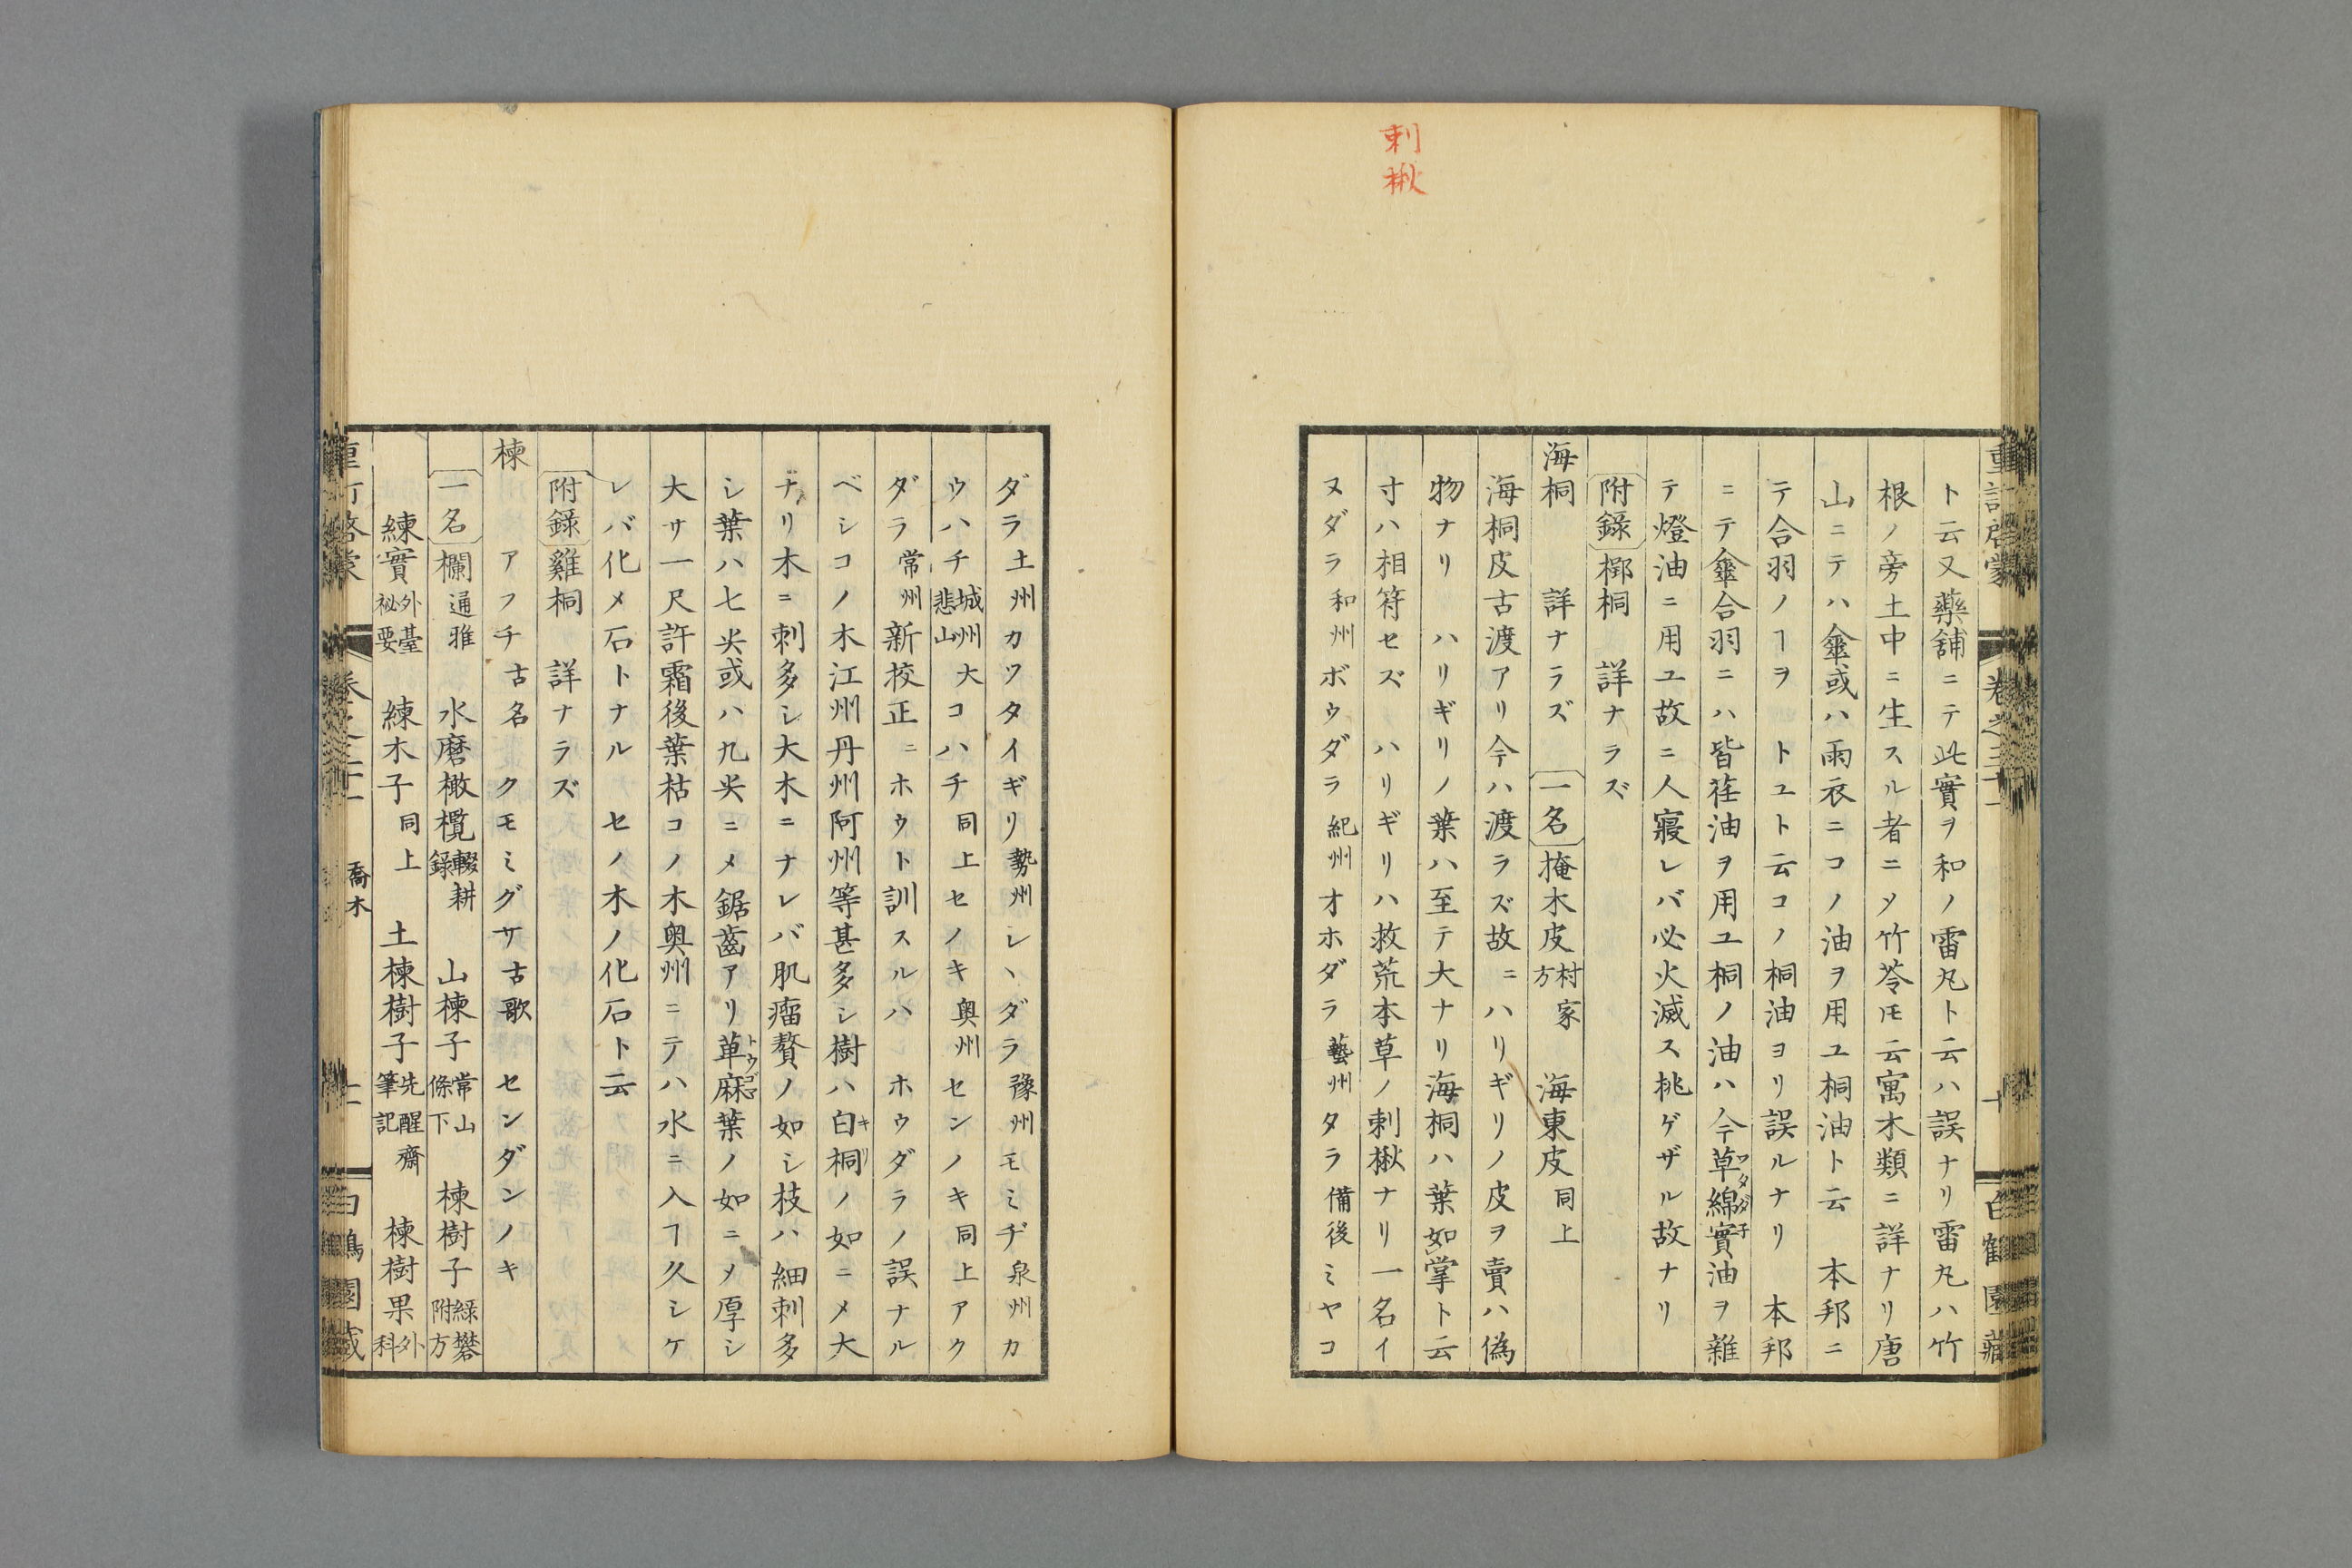 刺楸
重訂啓蒙 卷之三十一 十 白鶴園藏
ト云又藥舖ニテ此實ヲ和ノ雷丸ト云ハ誤ナリ雷丸ハ竹
根ノ旁土中ニ生スル者ニㄨ竹苓𪜈云寓木類ニ詳ナリ唐
山ニテハ傘或ハ雨衣ニコノ油ヲ用ユ桐油ト云 本邦ニ
テ合羽ノヿヲ トユト云コノ桐油ヨリ誤ルナリ 本邦
ニテ傘合羽ニハ皆荏油ヲ用ユ桐ノ油ハ今草綿實ワタダ子油ヲ雜
テ燈油ニ用ユ故ニ人寢レバ必火滅ス桃ゲザル故ナリ
附錄 梛桐 詳ナラズ
海桐 詳ナラズ 一名 掩木皮村家方 海東皮同上
海桐皮古渡アリ今ハ渡ラズ故ニハリギリノ皮ヲ賣ハ偽
物ナリ ハリギリノ葉ハ至テ大ナリ海桐ハ葉如掌ト云
寸ハ相符セズ ハリギリハ救荒本草ノ刺楸ナリ一名イ
ヌダラ和州ボウダラ紀州オホダラ藝州タラ備後ミヤコ
ダラ土州カワタイギリ勢州レヽダラ豫州モミヂ泉州カ
ウハチ城州悲山大コハチ同上セノキ奥州センノキ同上アク
ダラ常州新校正ニホウト訓スルハホウダラノ誤ナル
ベシコノ木江州丹州阿州等甚多シ樹ハ白桐キリノ如ニㄨ大
ナリ木ニ刺多シ大木ニナレバ肌瘤贅ノ如シ枝ハ細刺多
シ葉ハ七尖或ハ九尖ニㄨ鋸齒アリ草麻トウゴマ葉ノ如ニㄨ厚シ
大サ一尺許霜後葉枯コノ木奥州ニテハ水ニ入ヿ久シケ
レバ化ㄨ石トナル セノ木ノ化石ト云
附錄 雞桐 詳ナラズ
楝 アフチ古名 クモミグサ古歌 センダンノキ
一名 欄通雅 水磨橄欖輟耕錄 山楝子常山條下 楝樹子綠礬附方
練實外臺祕要 練木子同上 土楝樹子先醒齋筆記 楝樹果外科
重訂啓蒙 卷之三十一 喬木 十一 白鶴園藏